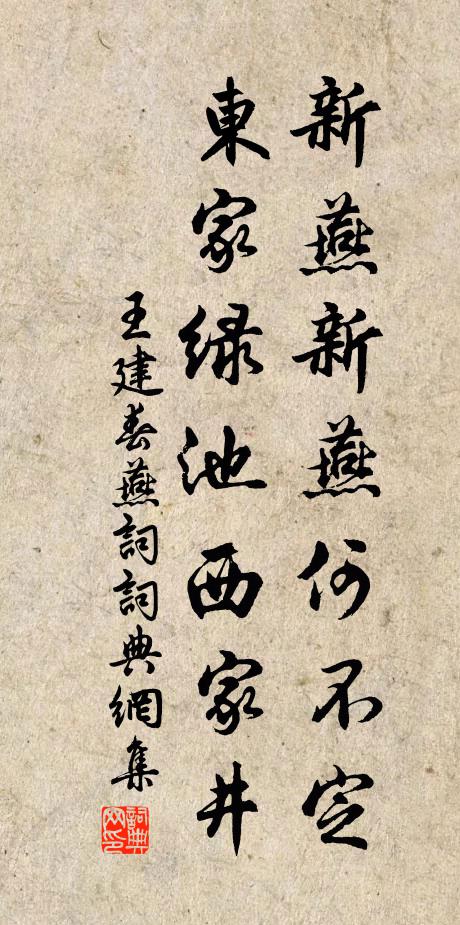 新燕新燕何不定
東家綠池西家井
王建春燕詞詞典網集
詞典網印